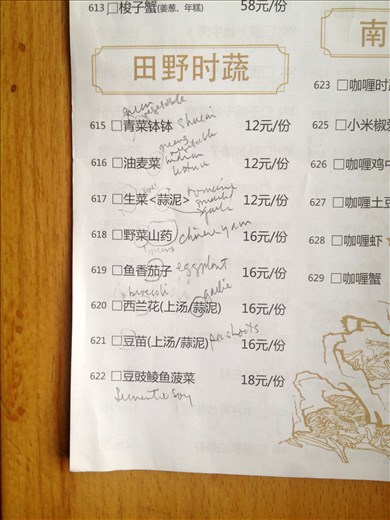 613 □梭子蟹(姜葱、年糕) 58元/份
田野时蔬
南
green vegetable
615 □青菜钵钵 12元/份
vegetable
Indian lettuce
616 □油麦菜 12元/份
romaine
617 □生菜<蒜泥> 12元/份
garlic
618 □野菜山药 16元/份
chinese yam
619 □鱼香茄子 16元/份
eggplant
broccoli garlic
620 □西兰花(上汤/蒜泥) 16元/份
621 □豆苗(上汤/蒜泥) 16元/份
pea shoots
622 □豆豉鲮鱼菠菜 18元/份
soy
623 □咖喱时
625 □小米椒
626 □咖喱鸡
627 □咖喱土豆
628 □咖喱虾
629 □咖喱蟹